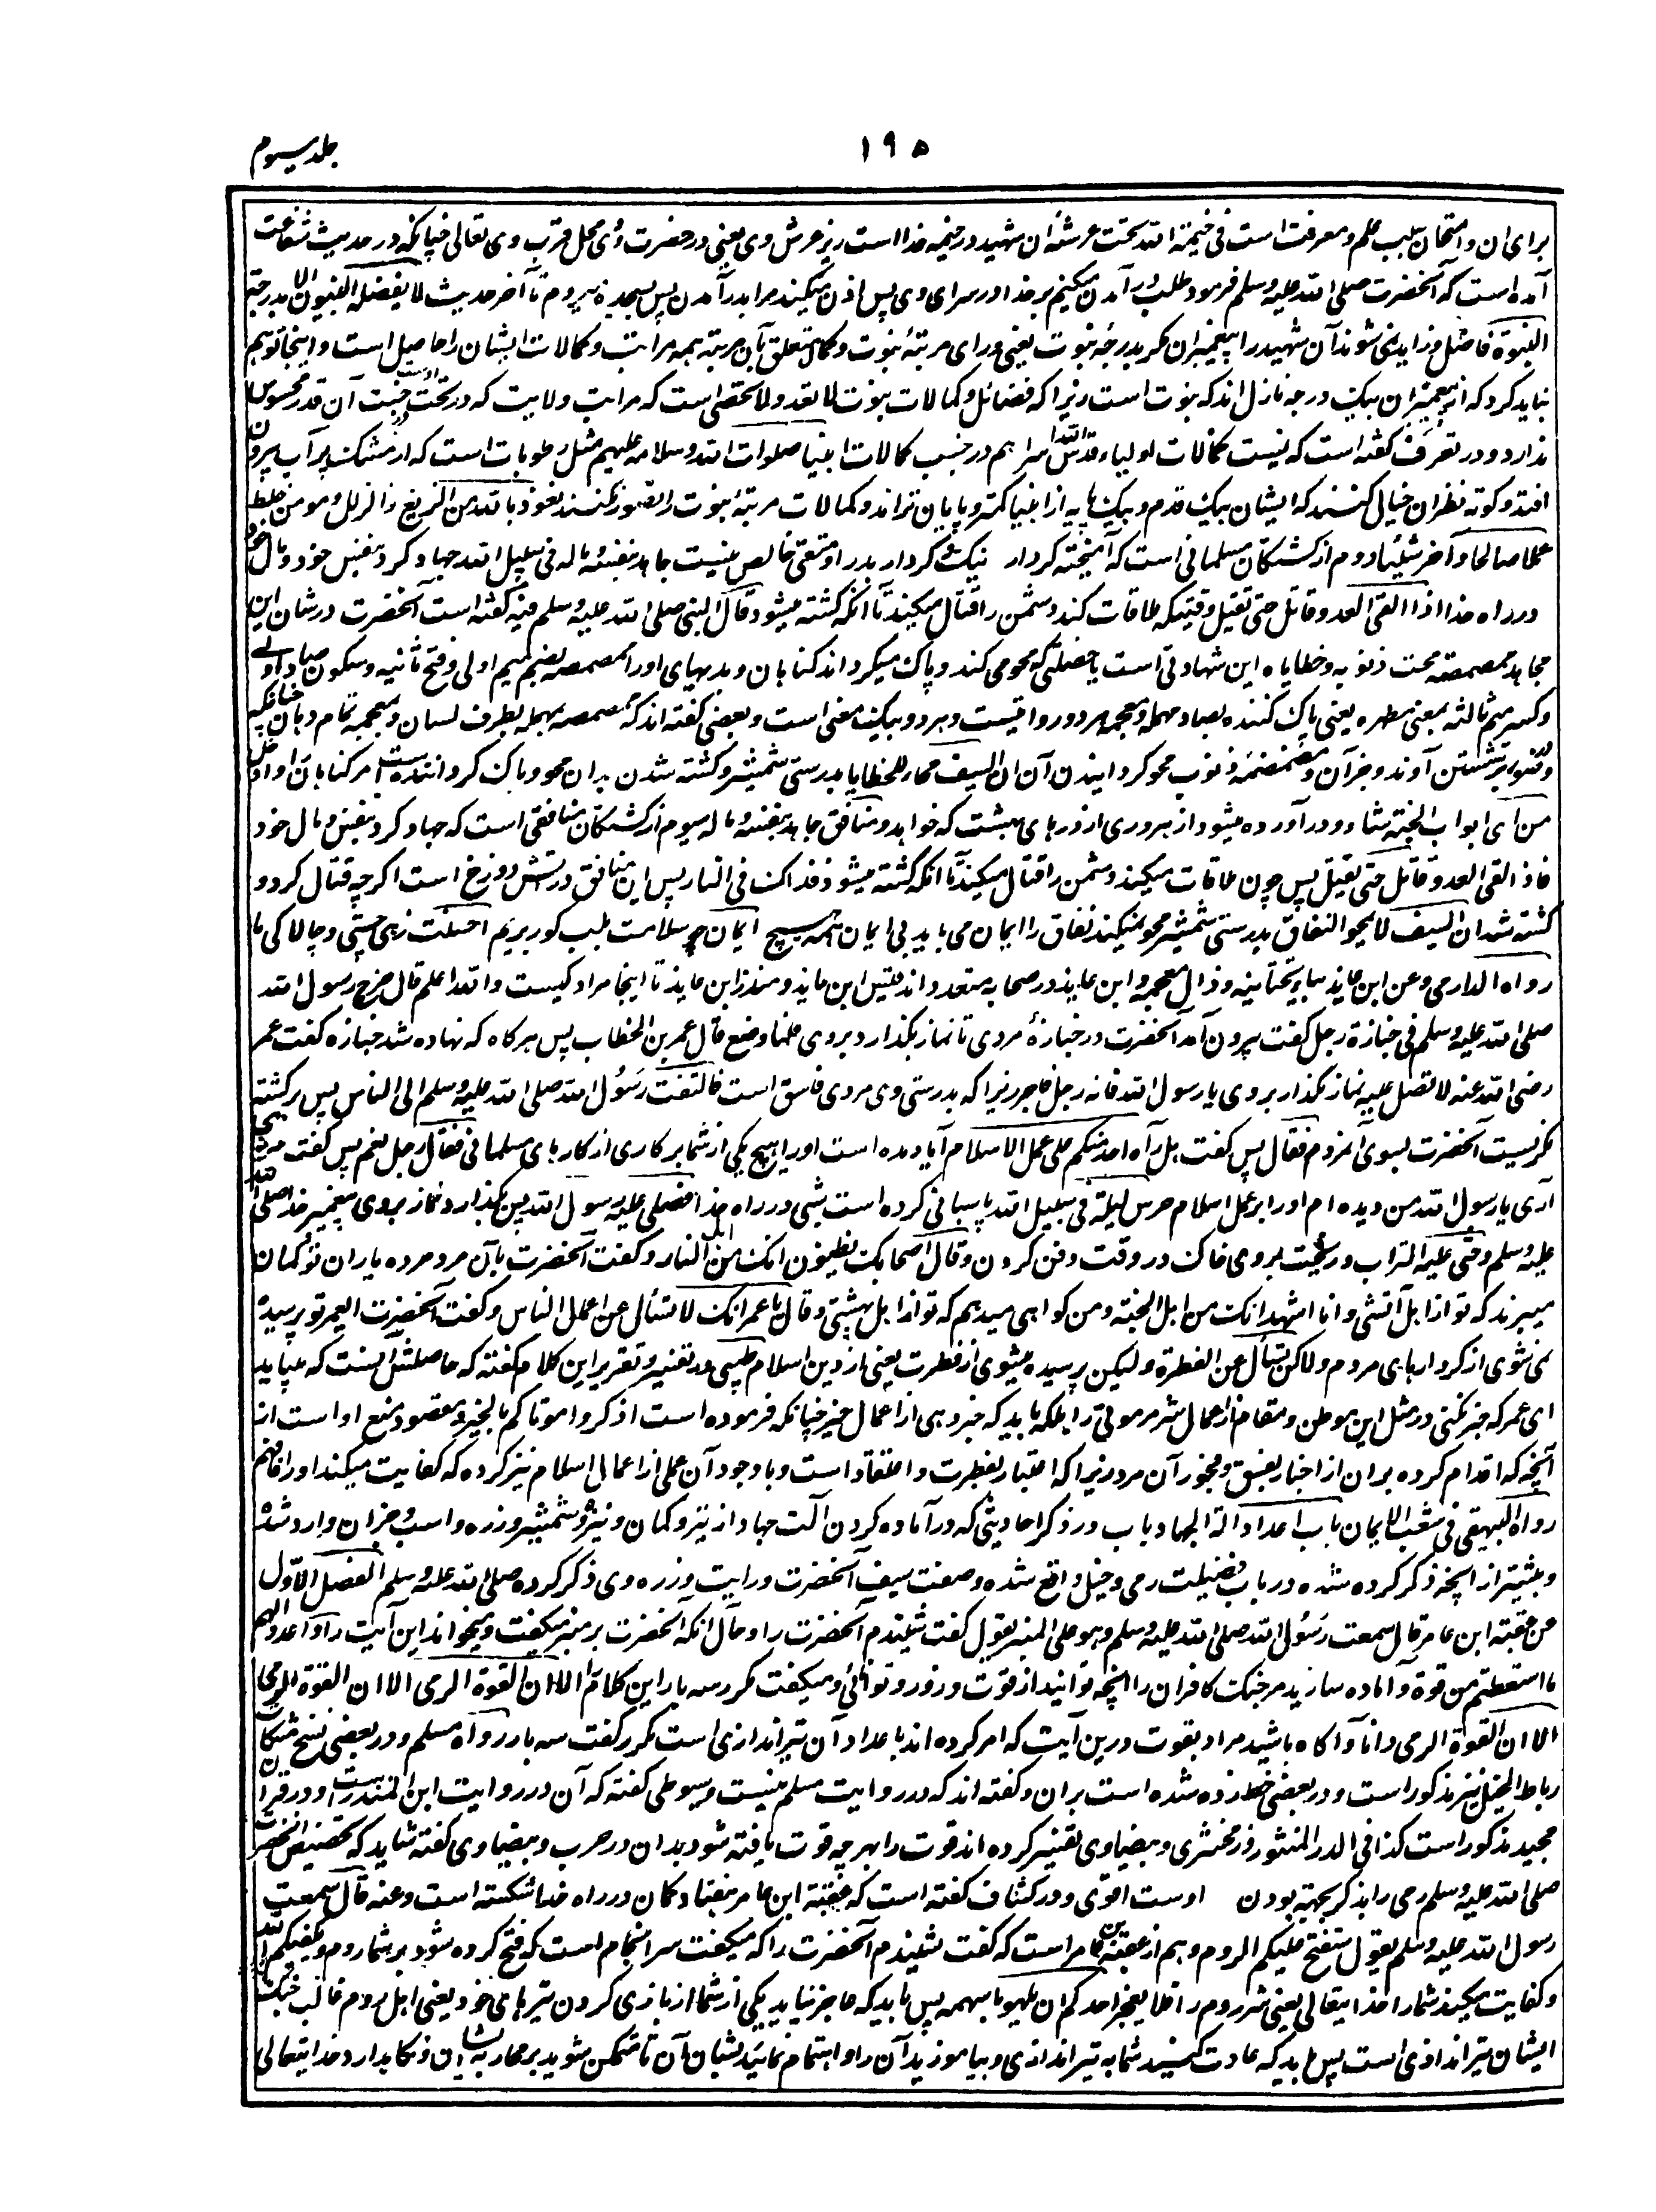 ۱۹۵
جلد سیوم
برای آن و امتحان سبب علم و معرفت است فی خیمة الله تحت عرشه ان شهید در خیمه خدا است زیر عرش وی یعنی در حضرت وی محل قرب وی تعالی چنانکه در حدیث شفاعت
آمده است که آنحضرت صلی الله علیه وسلم فرمود طلب در آمدن میکنم بر خدا در سرای وی پس اذن میکنند مرا بدر آمدن پس بسجده میروم تا آخر حدیث لا یفضله النبیون الا بدرجة
النبوة فاضل و زاید نمی شوند آن شهید را پیغمبران مگر بدرجه نبوت یعنی ورای مرتبه نبوت و کمال متعلق بآن مرتبه همه مراتب و کمالات ایشان را حاصل است و اینجا توهم
نباید کرد که از پیغمبران بیک درجه نازل اند که نبوت است زیرا که فضائل و کمالات نبوت لا تعد ولا تحصی است که مراتب ولایت که در تحت اوست در جنب آن قدر محسوس
ندارد و در تعرف گفته است که نیست کمالات اولیاء قدس الله اسرارهم در جنب کمالات انبیا صلوات الله وسلامه علیهم مثل رطوبات است که از مشک پر آب بیرون
افتد و کوته نظران خیال کنند که ایشان بیک قدم و بیک پایه از انبیا کمتر و پایان تراند و کمالات مرتبه نبوت را تصور نکنند نعوذ بالله من الزیغ والزلل ومومن خلط
عملا صالحا وآخر سیئا دوم از کشتگان مسلمانی است که آمیخته کردار نیک و کردار بد را و متقی خالص نیست جاهد بنفسه وماله فی سبیل الله جهاد کرد بنفس خود و مال خود
در راه خدا اذا لقی العدو قاتل حتی یقتل وقتیکه ملاقات کند دشمن را قتال میکند تا آنکه کشته میشود قال النبی صلی الله علیه وسلم فیه گفته است آنحضرت در شان این
مجاهد ممصمصة محت ذنوبه وخطایاه این شهادتی است یا خصلتی که محو می کند و پاک میگرداند گناهان و بدیهای او را ممصمصه بضم میم اولی وفتح ثانیه وسکون صاد اولی
وکسر میم ثالثه بمعنی مطهره یعنی پاک کننده بصاد مهمله و معجمه هر دو روایتست و هر دو بیک معنی است و بعضی گفته اند که مصمصه بمهمله بطرف لسان و بمعجمه تمام دهان چنانکه
وضو بر شستن آوند و جز آن و مصمصه ذنوب محو گردانیدن آن ان السیف محاء للخطایا بدرستی شمشیر و کشته شدن بدان محو و پاک گرداننده است مر گناهان را وادخل
من ای ابواب الجنة شاء و در آورده میشود از هر دری از درهای بهشت که خواهد ومنافق جاهد بنفسه وماله سیوم از کشتگان منافقی است که جهاد کرد بنفس و مال خود
فاذا لقی العدو قاتل حتی یقتل پس چون ملاقات میکند دشمن را قتال میکند تا آنکه کشته میشود فذاک فی النار پس این منافق در آتش دوزخ است اگرچه قتال کرد و
کشته شد ان السیف لا یمحو النفاق بدرستی شمشیر محو نمیکند نفاق را ایمان می باید بی ایمان همه هیچ ایمان چو سلامت بلب گور بریم احسنت زهی چستی و چالاکی ما
رواه الدارمی وعن ابن عایذ بیای تحتانیه و ذال معجمه وابن عایذ در صحابه متعدد اند قیس ابن عایذ ومنذر ابن عایذ تا اینجا مراد کیست والله اعلم قال خرج رسول الله
صلی الله علیه وسلم فی جنازة رجل گفت بیرون آمد آنحضرت در جنازه مردی تا نماز بگذارد بروی فلما وضع قال عمر بن الخطاب پس هرگاه که نهاده شد جنازه گفت عمر
رضی الله عنه لا تصل علیه نماز مگذار بروی یا رسول الله فانه رجل فاجر زیرا که بدرستی وی مردی فاسق است فالتفت رسول الله صلی الله علیه وسلم الی الناس پس برگشته
نگریست آنحضرت بسوی آنمردم فقال پس گفت هل رآه احد منکم علی عمل الاسلام آیا دیده است او را هیچ یکی از شما بر کاری از کارهای مسلمانی فقال رجل نعم پس گفت مردی
آری یا رسول الله من دیده ام او را بر عمل اسلام حرس لیلة فی سبیل الله پاسبانی کرده است شبی در راه خدا فصلی علیه رسول الله پس بگذارد نماز بروی پیغمبر خدا صلی الله
علیه وسلم وحثی علیه التراب و ریخت بروی خاک در وقت دفن کردن وقال اصحابک یظنون انک من اهل النار و گفت آنحضرت بآن مرد مرده یاران تو گمان
میبرند که تو از اهل آتشی وانا اشهد انک من اهل الجنة ومن گواهی میدهم که تو از اهل بهشتی وقال یا عمر انک لا تسأل عن اعمال الناس و گفت آنحضرت ای عمر تو پرسیده
نمی شوی از کردارهای مردم ولکن تسأل عن الفطرة ولیکن پرسیده میشوی از فطرت یعنی از دین اسلام طیبی در تفسیر و تقریر این کلام گفته که حاصلش اینست که نباید
ای عمر که خبر کنی در مثل این موطن ومقام از اعمال شر مر موتی را بلکه باید که خبر دهی از اعمال خیر چنانکه فرموده است اذکروا موتاکم بالخیر و مقصود منع او است از
آنچه که اقدام کرده بر آن از اخبار بفسق و فجور آن مرد زیرا که اعتبار بفطرت و اعتقاد است و با وجود آن عملی از اعمال اسلام نیز کرده که کفایت میکند او را فافهم
رواه البیهقی فی شعب الایمان باب اعداد آلة الجهاد باب در ذکر احادیثی که در آماده کردن آلت جهاد از تیر و کمان و نیزه و شمشیر و زره و اسپ و جز آن وارد شده
و بیشتر از آنچه ذکر کرده شده در باب فضیلت رمی و خیل واقع شده و صفت سیف آنحضرت و رایت و زره وی ذکر کرده صلی الله علیه وسلم الفصل الاول
عن عقبة ابن عامر قال سمعت رسول الله صلی الله علیه وسلم وهو علی المنبر یقول گفت شنیدم آنحضرت را و حال آنکه آنحضرت بر منبر میگفت و میخواند این آیت را واعدوا لهم
ما استطعتم من قوة وآماده سازید مر جنگ کافران را آنچه توانید از قوت و زور و توانائی و میگفت مکرر سه بار این کلام الا ان القوة الرمی الا ان القوة الرمی
الا ان القوة الرمی دانا و آگاه باشید مراد بقوت درین آیت که امر کرده اند باعداد آن تیر اندازی است مکرر گفت سه بار رواه مسلم و در بعضی نسخ مشکات
رباط الخیل نیز مذکور است و در بعضی خط زده شده است بر آن و گفته اند که در روایت مسلم نیست و سیوطی گفته که آن در روایت ابن المنذر است و در قرآن
مجید مذکور است کذا فی الدر المنثور و زمخشری و بیضاوی تفسیر کرده اند قوت را بهر چه قوت یافته شود بدان در حرب و بیضاوی گفته شاید که تخصیص آنحضرت
صلی الله علیه وسلم رمی را بذکر بجهة بودن اوست اقوی و در کشاف گفته است که عقبة ابن عامر هفتاد کمان در راه خدا شکسته است وعنه قال سمعت
رسول الله علیه وسلم یقول ستفتح علیکم الروم وهم از عقبة بن عامر است که گفت شنیدم آنحضرت را که میگفت سرانجام است که فتح کرده شود بر شما روم ویکفیکم الله
و کفایت میکند شما را خدایتعالی یعنی شر روم را فلا یعجز احدکم ان یلهو باسهمه پس باید که عاجز نیاید یکی از شما از بازی کردن تیرهای خود یعنی اهل روم غالب جنگ
ایشان تیر اندازی است پس باید که عادت کنید شما به تیر اندازی و بیاموزید آن را و اهتمام نمائید بشان آن تا متمکن شوید بر محاربه ایشان و نگاهدارد خدایتعالی